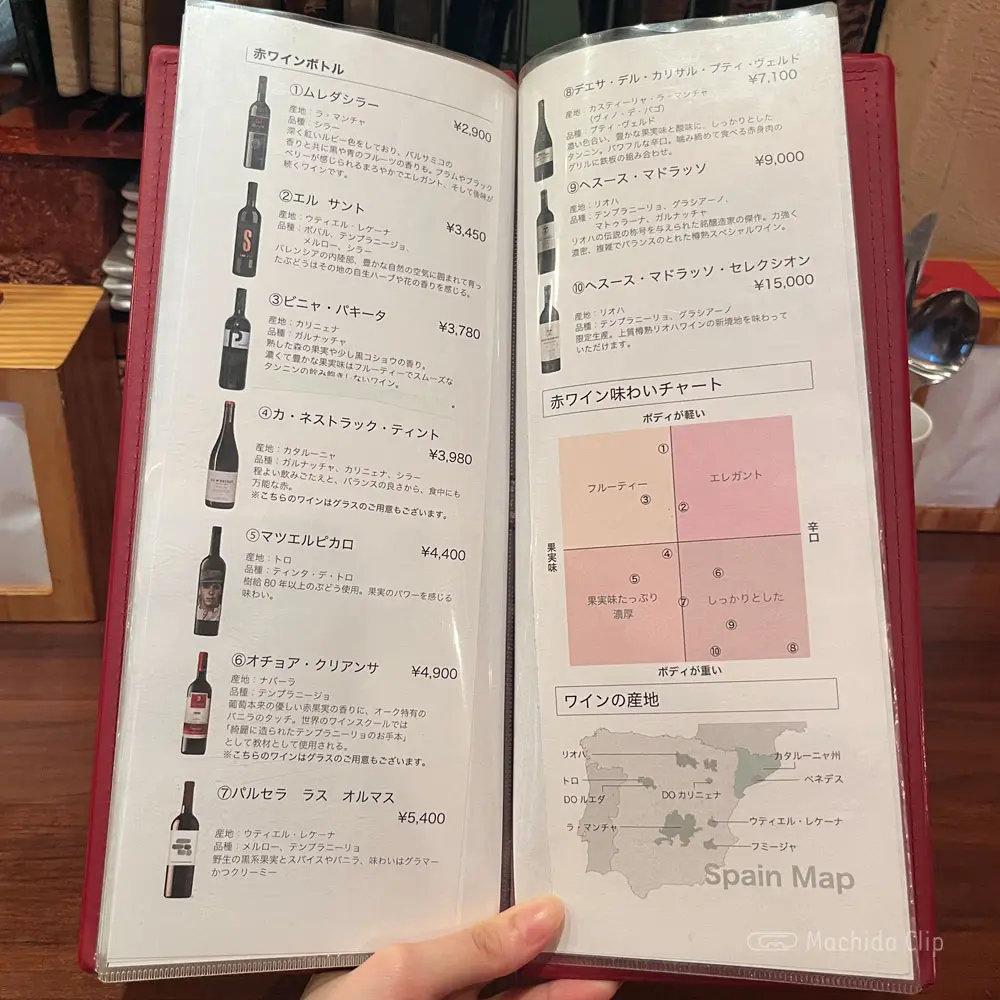 赤ワインボトル
①ムレダシラー
¥2,900
産地：ラ・マンチャ
品種：シラー
深く紅いルビー色をしており、バルサミコの
香りと共に黒や青のフルーツの香りも。プラムやブラック
ベリーが感じられるまろやかでエレガント、そして後味が
続くワインです。
②エル サント
¥3,450
産地：ウティエル・レケーナ
品種：ボバル、テンプラニージョ、
メルロー、シラー
バレンシアの内陸部、豊かな自然の空気に囲まれて育っ
たぶどうはその地の自生ハーブや花の香りを感じる。
③ビニャ・パキータ
¥3,780
産地：カリニェナ
品種：ガルナッチャ
熟した森の果実や少し黒コショウの香り。
濃くて豊かな果実味はフルーティーでスムーズな
タンニンの飲み飽きしないワイン。
。
④カ・ネストラック・ティント
¥3,980
産地：カタルーニャ
品種：ガルナッチャ、カリニェナ、シラー
程よい飲みごたえと、バランスの良さから、食中にも
万能な赤。
※こちらのワインはグラスのご用意もございます。
⑤マツエルピカロ
¥4,400
産地：トロ
品種：ティンタ・デ・トロ
樹齢80年以上のぶどう使用。果実のパワーを感じる
味わい。
⑥オチョア・クリアンサ
¥4,900
産地：ナバーラ
品種：テンプラニージョ
葡萄本来の優しい赤果実の香りに、オーク特有の
バニラのタッチ。世界のワインスクールでは
「綺麗に造られたテンプラニーリョのお手本」
として教材として使用される。
※こちらのワインはグラスのご用意もございます。
⑦パルセラ ラス オルマス
¥5,400
産地：ウティエル・レケーナ
品種：メルロー、テンプラニーリョ
野生の黒系果実とスパイスやバニラ、味わいはグラマー
かつクリーミー
⑧デエサ・デル・カリサル・プティ・ヴェルド
¥7,100
産地：カスティーリャ・ラ・マンチャ
(ヴィノ・デ・パゴ)
品種：プティ・ヴェルド
濃い色合い、豊かな果実味と酸味に、しっかりとした
タンニン。パワフルな辛口。噛み締めて食べる赤身肉の
グリルに鉄板の組み合わせ。
⑨ヘスース・マドラッソ
¥9,000
産地：リオハ
品種：テンプラニーリョ、グラシアーノ、
マトゥラーナ、ガルナッチャ
リオハの伝説の称号を与えられた銘醸造家の傑作。力強く
濃密、複雑でバランスのとれた樽熟スペシャルワイン。
⑩ヘスース・マドラッソ・セレクシオン
¥15,000
産地：リオハ
品種：テンプラニーリョ、グラシアーノ
限定生産。上質樽熟リオハワインの新境地を味わって
いただけます。
赤ワイン味わいチャート
ボディが軽い
①
フルーティー
エレガント
③
②
果実味
辛口
④
⑤
⑥
果実味たっぷり
濃厚
⑦
しっかりとした
⑨
⑩
⑧
ボディが重い
ワインの産地
リオハ
カタルーニャ州
トロ
ペネデス
DO ルエダ
DO カリニェナ
ラ・マンチャ
ウティエル・レケーナ
フミージャ
Spain Map
Machida Clip